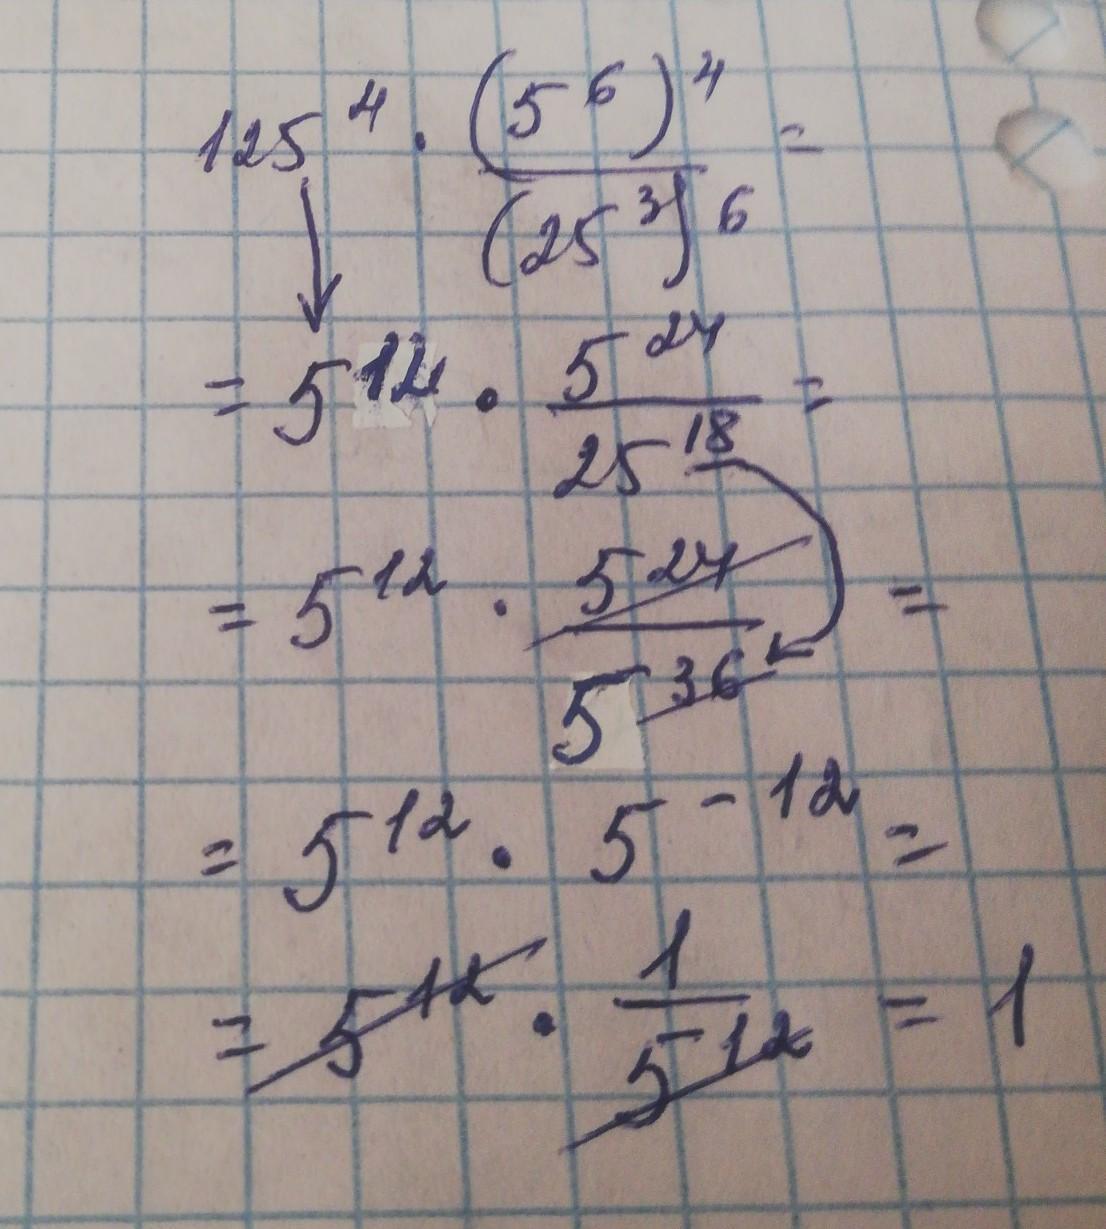 125⁴ · (5⁶)⁴ / (25³)⁶ =
= 5¹² · 5²⁴ / 25¹⁸ =
= 5¹² · 5²⁴ / 5³⁶ =
= 5¹² · 5⁻¹² =
= 5¹² · 1 / 5¹² = 1